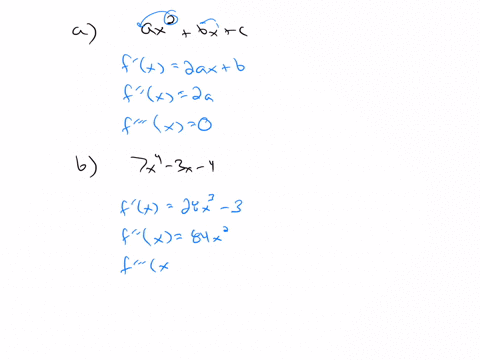 a) ax² + bx + c
f'(x) = 2ax + b
f''(x) = 2a
f'''(x) = 0
b) 7x⁴ - 3x - 4
f'(x) = 28x³ - 3
f''(x) = 84x²
f'''(x